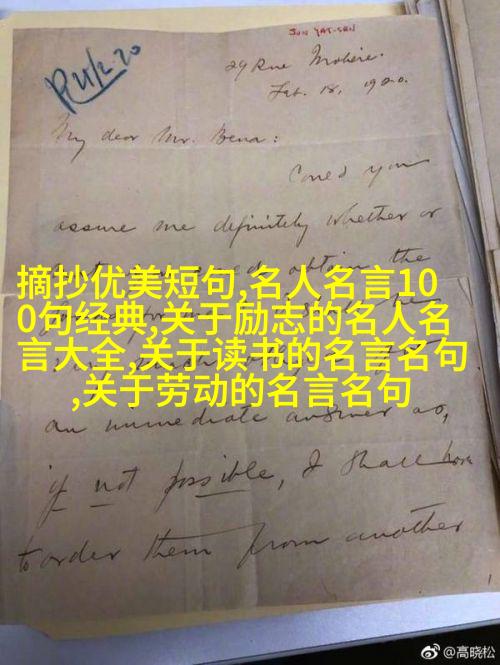 SUN YAT-SEN
R 21/2.20
29 Rue Molière.
Feb. 18, 1920.
My dear Mr. Bena:
Could you
assure me definitely whether or
摘抄优美短句,名人名言10
0句经典,关于励志的名人名
言大全,关于读书的名言名句
,关于劳动的名言名句
obtain the
an immediate answer as,
if not possible, I shall have
to order them from another
@高晓松